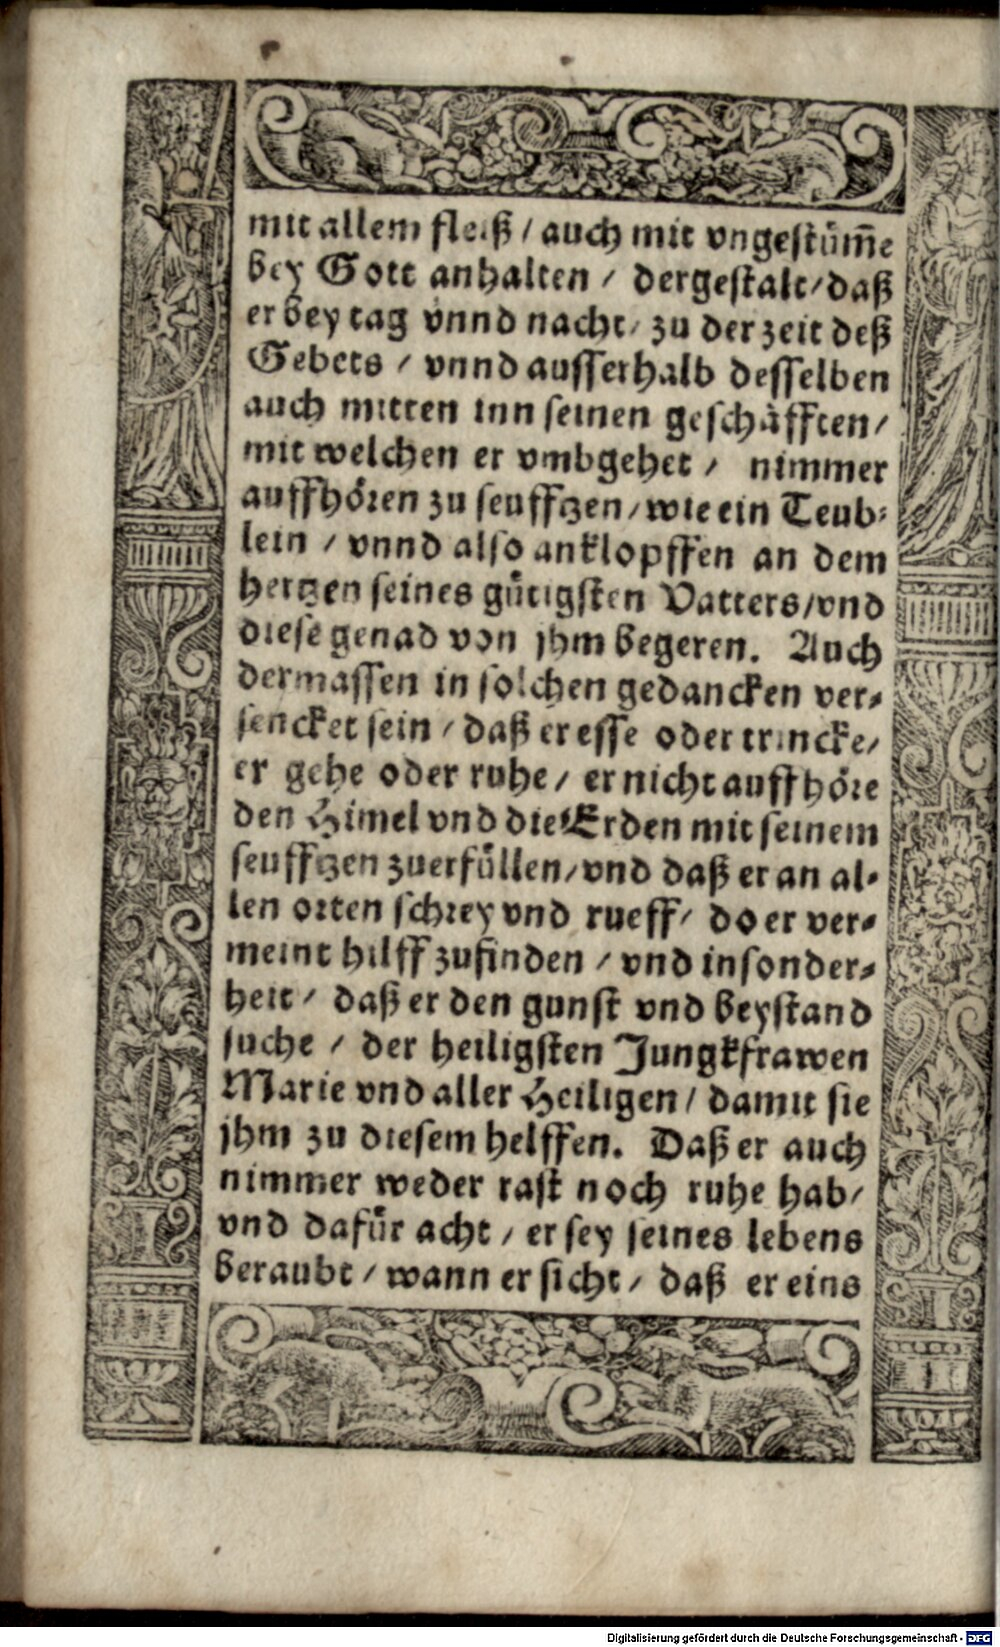 mit allem fleiß / auch mit vngestüm̃e
bey Gott anhalten / dergestalt / daß
er bey tag vnnd nacht / zu der zeit deß
Gebets / vnnd ausserhalb desselben
auch mitten inn seinen geschäfften /
mit welchen er vmbgehet / nimmer
auffhören zu seufftzen / wie ein Teub⸗
lein / vnnd also anklopffen an dem
hertzen seines gütigsten Vatters / vnd
diese genad von jhm begeren. Auch
dermassen in solchen gedancken ver⸗
sencket sein / daß er esse oder trincke /
er gehe oder ruhe / er nicht auffhöre
den Himel vnd die Erden mit seinem
seufftzen zuerfüllen / vnd daß er an al⸗
len orten schrey vnd rueff / do er ver⸗
meint hilff zufinden / vnd insonder⸗
heit / daß er den gunst vnd beystand
suche / der heiligsten Jungkfrawen
Marie vnd aller Heiligen / damit sie
jhm zu diesem helffen. Daß er auch
nimmer weder rast noch ruhe hab /
vnd dafür acht / er sey seines lebens
beraubt / wann er sicht / daß er eins
Digitalisierung gefördert durch die Deutsche Forschungsgemeinschaft - DFG